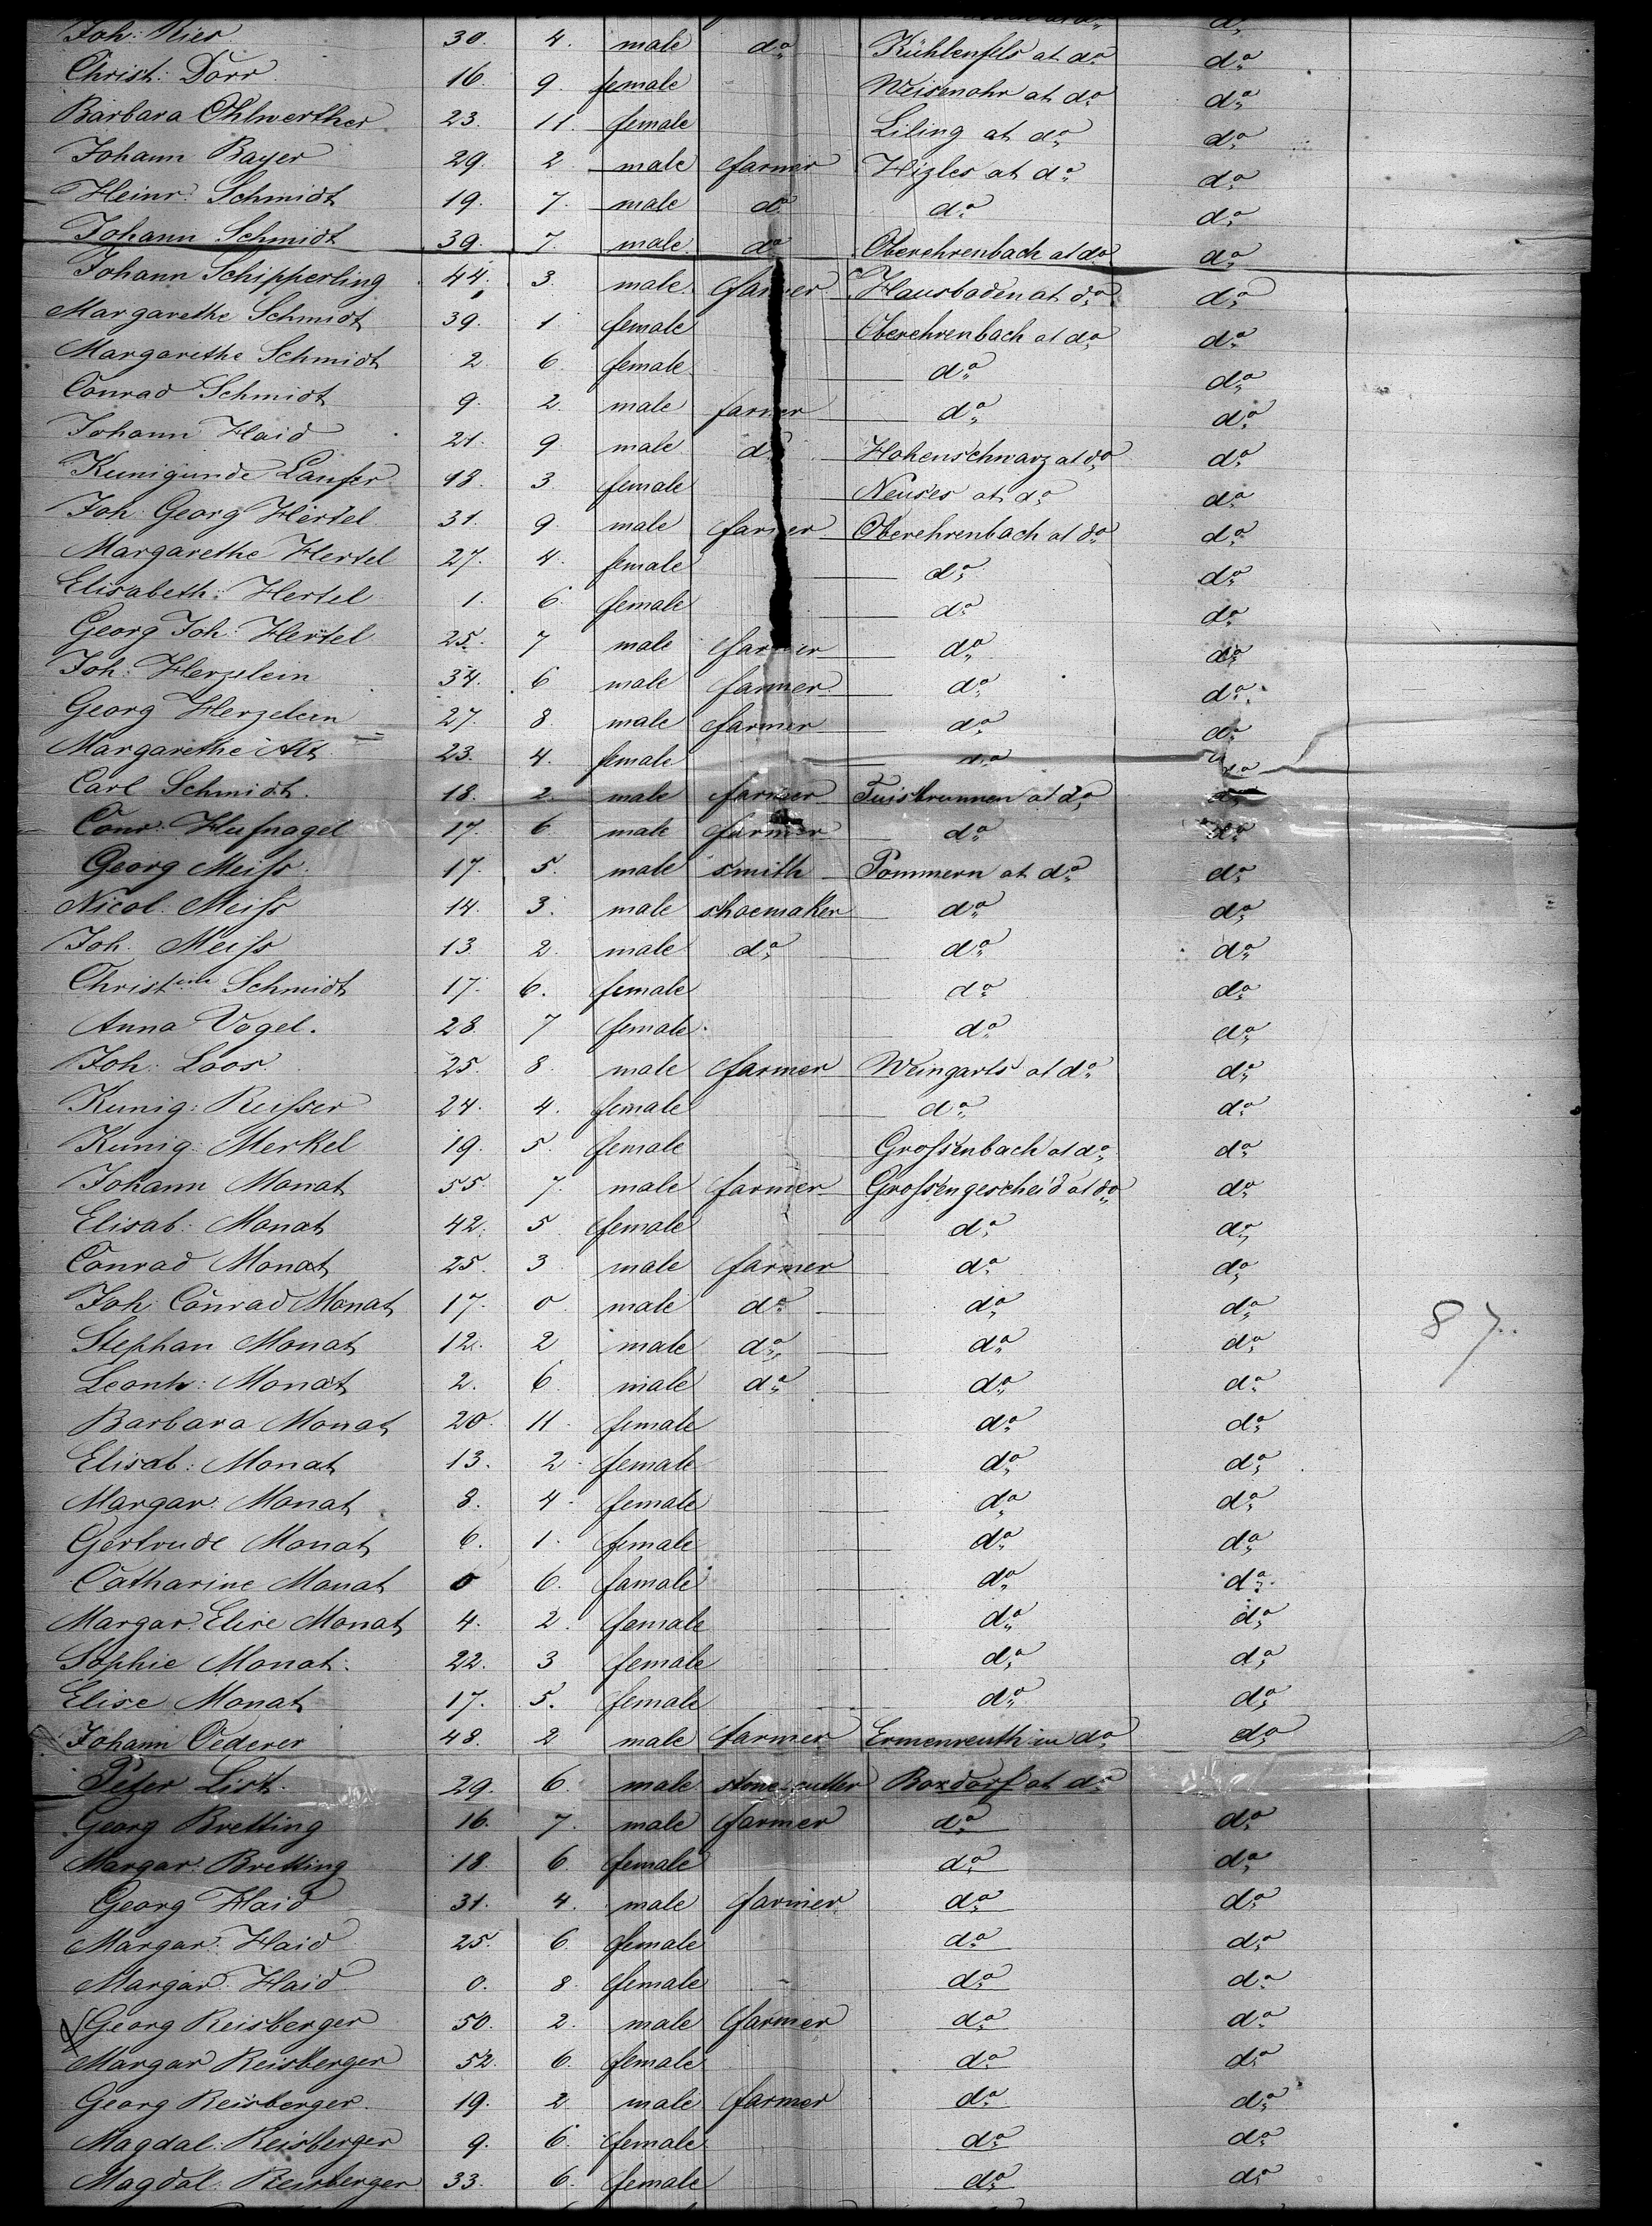 Joh: Ries 30. 4. male do Kühlenfels at do do
Christ: Dorr 16. 9. female Weisenohr at do do
Barbara Ohlwerther 23. 11. female Liling at do do
Johann Bayer 29. 2 male farmer Hizles at do do
Heinr. Schmidt 19. 7. male do do do
Johann Schmidt 39. 7. male do Oberehrenbach at do do
Johann Schipperling 44. 3. male farmer Hausbaden at do do
Margarethe Schmidt 39. 1 female Oberehrenbach at do do
Margarethe Schmidt 2 6. female do do
Conrad Schmidt 9. 2. male farmer do do
Johann Haid 21. 9. male do Hohenschwarz at do do
Kunigunde Laufer 18. 3. female Neuses at do do
Joh. Georg Hertel 31. 9. male farmer Oberehrenbach at do do
Margarethe Hertel 27. 4. female do do
Elisabeth: Hertel 1. 6. female do do
Georg Joh: Hertel 25. 7 male farmer do do
Joh: Herzelein 34. 6 male farmer do do
Georg Herzelein 27. 8. male farmer do do
Margarethe Alt 23. 4. female do do
Carl Schmidt. 18. 2. male farmer Tuisbrunnen at do do
Conr. Hufnagel 17. 6 male farmer do do
Georg Meiſs. 17. 5. male smith Pommern at do do
Nicol. Meiſs 14. 3. male shoemaker do do
Joh. Meiſs 13 2. male do do do
Christine Schmidt 17. 6. female do do
Anna Vogel. 28. 7 female. do do
Joh: Loos 25. 8. male farmer Weingarts at do do
Kunig: Reiſser 24. 4. female do do
Kunig: Merkel 19. 5. female Groſsenbach at do do
Johann Monat 55. 7. male farmer Groſsengescheid at do do
Elisab: Monat 42. 5 female do do
Conrad Monat 25. 3 male farmer do do
Joh: Conrad Monat 17. 0 male do do do
Stephan Monat 12. 2 male do do do
Leonh: Monat 2. 6. male do do do
87.
Barbara Monat 20. 11. female do do
Elisab: Monat 13. 2. female do do
Margar: Monat 8. 4. female do do
Gertrude Monat 6. 1. female do do
Catharine Monat 0 6. famale do do
Margar: Elise Monat 4. 2. female do do
Sophie Monat. 22. 3 female do do
Elise Monat 17. 5. female do do
Johann Oederer 48. 2 male farmer Ermenreuth in do do
Peter List. 29. 6. male stone-cutter Boxdorf at do
Georg Bretting 16. 7. male farmer do do
Margar: Bretting 18. 6. female do do
Georg Haid 31. 4. male farmer do do
Margar: Haid 25. 6. female do do
Margar: Haid 0. 8. female do do
Georg Reisberger 50. 2. male farmer do do
Margar Reisberger 52. 6. female do do
Georg Reisberger. 19. 2 male farmer do do
Magdal: Reisberger 9. 6. female do do
Magdal: Reisberger 33. 6. female do do